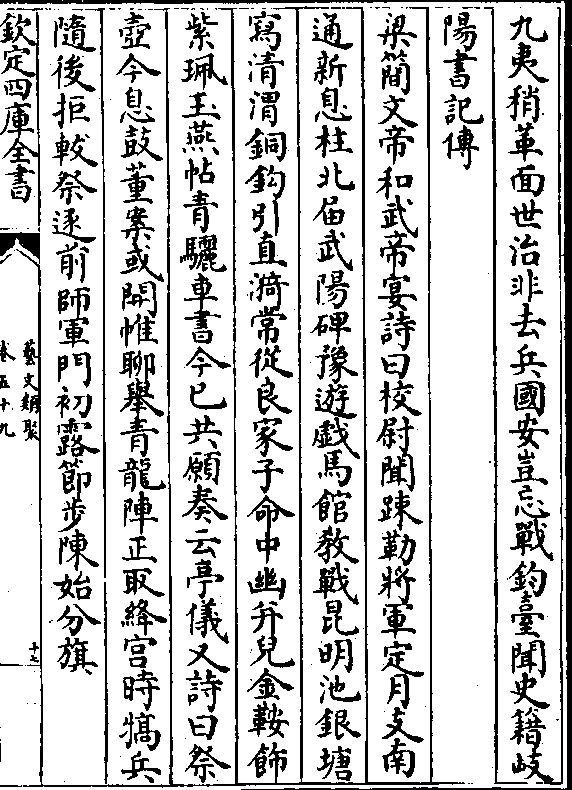 九夷稍革面世治非去兵國安豈忘戰鈞臺聞史籍岐
陽書記傳
梁簡文帝和武帝宴詩曰校尉聞疎勒將軍定月支南
通新息柱北届武陽碑豫遊戱馬館教戰昆明池銀塘
寫清渭銅鈎引直漪常從良家子命中幽并兒金鞍飾
紫珮玉燕帖青驪車書今已共願奏云亭儀又詩曰祭
壺今息鼓董案或開帷聊舉青龍陣正取絳宫時犒兵
隨後拒軷祭逐前師軍門初露節步陳始分旗
欽定四庫全書
藝文類聚
卷五十九